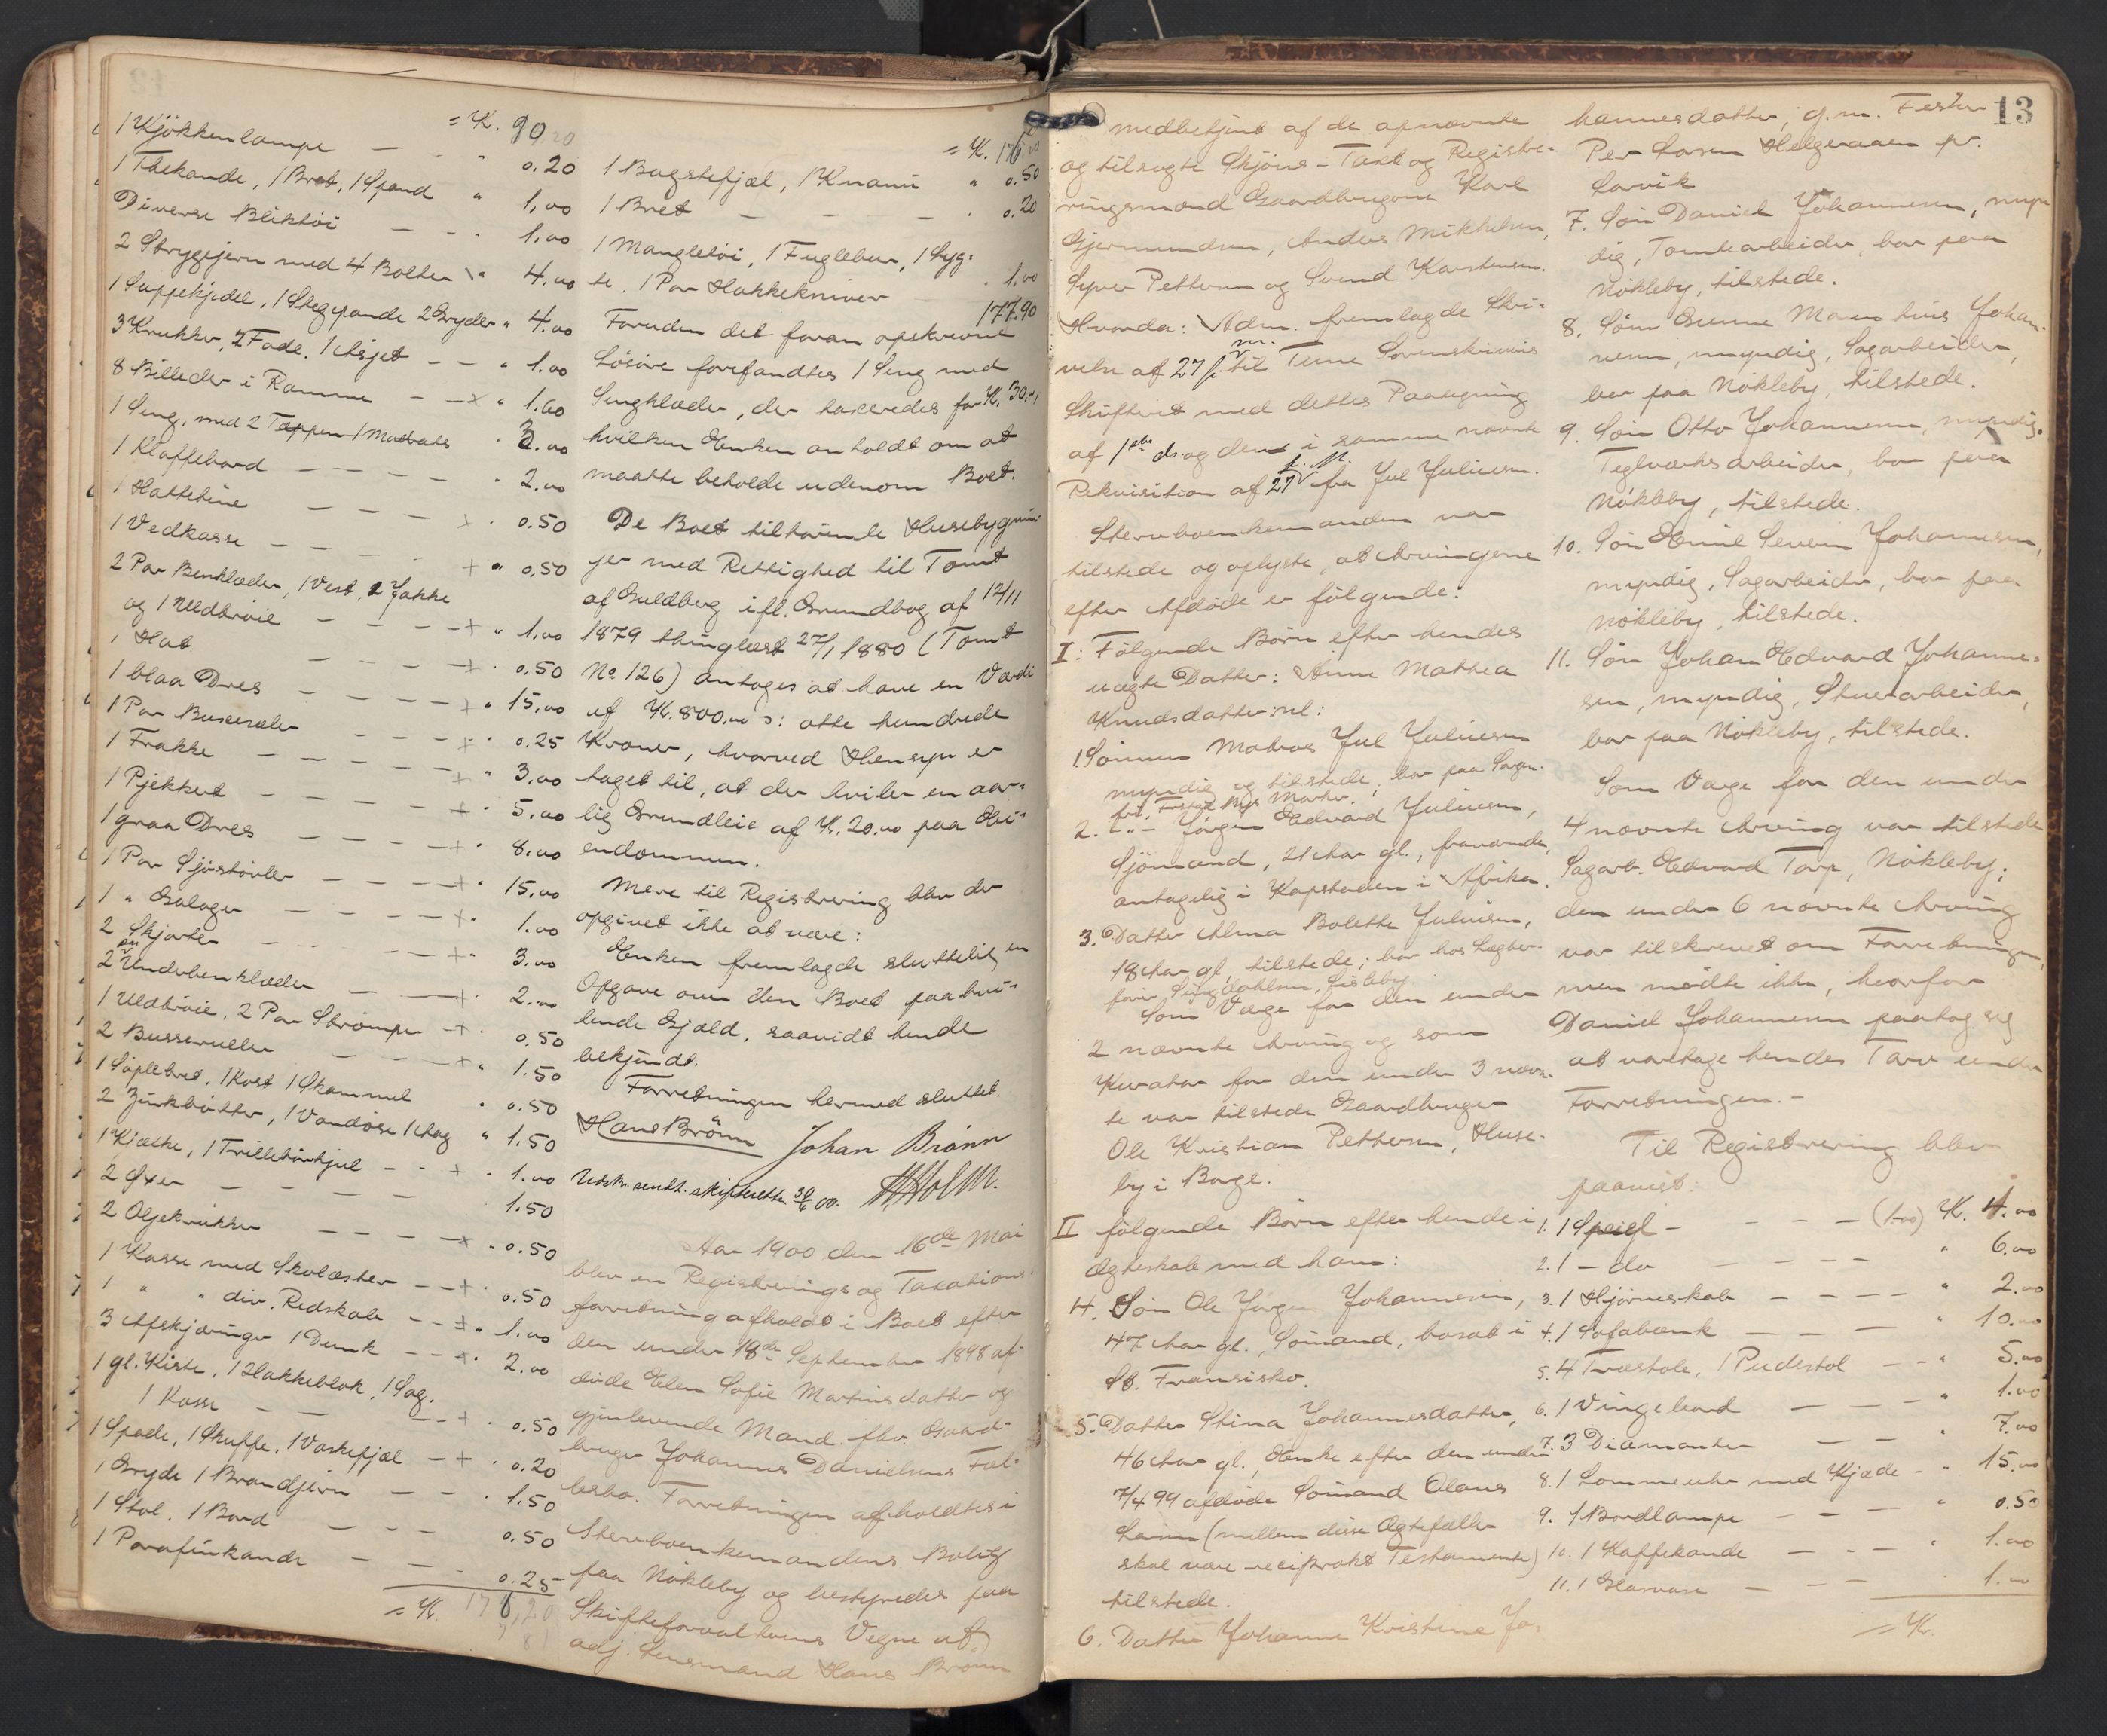 = K. 90.20
1 Kjökkenlampe — - " 0.20
1 Thekande, 1 Bret, 1 Spand " 1.00
Diverse Bliktöi — - - 1.00
2 Strygejern med 4 Bolter " 4.00
1 Suppekjedel, 1 Stegepande 2 Gryder " 4.00
3 Krukker, 2 Fade, 1 Asjet — — " 1.00
8 Billeder i Ramme — — x " 1.60
1 Seng, med 2 Tæpper 1 Madrats " 2.00
1 Klaffebord — — — — " 2.00
1 Hattetine — — — — x " 0.50
1 Vedkasse — — — — + " 0.50
2 Par Benklæder, 1 Vest, 2 Jakke
og 1 Uldtröie — — — + " 1.00
1 Hat — — — — + " 0.50
1 blaa Dres — — — — + " 15.00
1 Par Buxeseler — — — + " 0.25
1 Frakke — — — — — + " 3.00
1 Pjekkert — — — — + " 5.00
1 graa Dres — — — — + " 8.00
1 Par Sjöstövler — — — + " 15.00
1 " Galoger — — — — + " 1.00
2 Skjorter — — — + " 3.00
2 Underbenklæder — — + " 2.00
1 Uldtröie, 2 Par Strömper — + " 0.50
2 Busseruller — — — + " 1.50
1 Söplebret, 1 Kost 1 Skammel " 0.50
2 Zinkbötter, 1 Vandöse 1 Aag " 1.50
1 Kjælke, 1 Trillebörhjul — - + " 1.00
2 Øxer — — — — — 1.50
2 Oljekrukker — — — — x " 0.50
1 Kasse med Skolæster — — + " 0.50
1 " " div. Redskab — — + " 1.00
3 Afskjæringer 1 Dunk — — x " 2.00
1 gl. Kiste, 1 Hakkeblok, 1 Sag,
1 Kasse — — — — + " 0.50
1 Spade, 1 Skuffe, 1 Vaskefjæl — + " 0.20
1 Gryde 1 Brandjern — — " 1.50
1 Stol. 1 Bord — — — 0.50
1 Parafinkande — — " 0.25
= K. 176,20
= K. 176.20
1 Bagstefjæl, 1 Knani " 0.50
1 Bret — — — " 0.20
1 Mangletöi, 1 Fuglebur, 1 Syg-
te, 1 Par Hakkekniver " 1.00
177.90
Foruden det foran opskrevne
Lösöre forefandtes 1 Seng med
Sengklæder, der taxeredes for K. 30.00,
hvilken Enken anholdt om at
maatte beholde udenom Boet.
De Boet tilhörende Husebygnin-
ger med Rettighed til Tomt
af Guldberg ifl. Grundbog af 12/11
1879 thinglæst 27/1 1880 (Tomt
No 126) antoges at have en Værdi
af K. 800.00 ɔ: otte hundrede
Kroner, hvorved Hensyn er
taget til, at der hviler en aar-
lig Grundleie af K. 20.00 paa Ei-
endommen.
Mere til Registrering blev der
opgivet ikke at være:
Enken fremlagde sluttelig en
Opgave over den Boet paahvi-
lende Gjæld, saavidt hende
bekjendt.
Forretningen hermed sluttet.
Hans Brönn Johan Brönn
Udskr. sendt skifteretten 30/6 00. H. Holm.
Aar 1900 den 16de Mai
blev en Registrerings og Taxations
forretning afholdt i Boet efter
den under 18de September 1898 af-
döde Elen Sofie Martinsdatter og
gjenlevende Mand fhv. Gaard-
bruger Johannes Danielsens Fæl-
lesbo. Forretningen afholdtes i
Stervboenkemandens Bolig
paa Nökleby og bestyredes paa
Skifteforvalterens Vegne af
adj. Lensmand Hans Brönn
13
medbetjent af de opnævnte
og tilsagte Skjöns- Taxt og Registre-
ringsmænd Gaardbrugerne Karl
Gjermundsen, Anders Mikkelsen,
Syver Pettersen og Svend Karstensen.
Hvorda: Adm. fremlagde Skri-
velse af 27 f. m. til Tune Sorenskriveris
Skifteret med dettes Paategning
af 1ste ds og den i samme nævnte
Rekvisition af 27 f. M. fra Jul Juliusen.
Stervboenkemanden var
tilstede og oplyste, at Arvingerne
efter Afdöde er fölgende:
I: Fölgende Börn efter hendes
uægte Datter: Anne Mathea
Knudsdatter: nl:
1. Sönnen Matros Jul Juliusen
myndig og tilstede, bor paa
2. — " — Jörgen Edvard Juliusen,
Sjömand, 21 Aar gl., fraværende,
antagelig i Kapstaden i Afrika.
3. Datter Alma Bolette Juliusen,
18 Aar gl, tilstede; bor hos Lagter-
Som Værge for den under
2 nævnte Arving og som
Kurator for den under 3 nævn-
te var tilstede Gaardbruger
Ole Kristian Pettersen, Huse-
by i Borge.
II fölgende Börn efter hende i
Ægteskab med ham:
4. Sön Ole Jörgen Johannesen,
47 Aar gl., Sömand, bosat i
St. Fransisko.
5. Datter Stina Johannesdatter,
46 Aar gl., Enke efter den under
7/4 99 afdöde Sömand Olaus
Larsen (mellem disse Ægtefæller
skal være reciprokt Testamente)
tilstede.
6. Datter Johanne Kristine Jo-
hannesdatter, g. m. Fester
Per Larsen Helgeraaen pr.
Larvik
7. Sön Daniel Johannesen, myn-
dig, Tomtearbeider, bor paa
Nökleby, tilstede.
8. Sönn Gunne Martinus Johan-
nesen, myndig, Sagarbeider,
bor paa Nökleby, tilstede.
9. Sön Otto Johannesen, myndig.
Teglværksarbeider, bor paa
Nökleby, tilstede.
10. Sön Emil Severin Johannesen,
myndig, Sagarbeider, bor paa
Nökleby, tilstede.
11. Sön Johan Edvard Johanne-
sen, myndig, Stuerarbeider,
bor paa Nökleby, tilstede.
Som Værge for den under
4 nævnte Arving var tilstede
Sagarb. Edvard Torp, Nökleby;
den under 6 nævnte Arving
var tilskrevet om Forretningen,
men mödte ikke, hvorfor
Daniel Johannesen paatog sig
at varetage hendes Tarv under
Forretningen. -
Til Registrering blev
paavist:
1. 1 Speil — — — — (1.00) K. 4.00
2. 1 — do — — — — " 6.00
3. 1 Hjörneskab — — — — " 2.00
4. 1 Sofabænk — — — " 10.00
5. 4 Træstole, 1 Pudestol — — " 5.00
6. 1 Vingebord — — — " 1.00
7. 3 Diamanter — — " 7.00
8. 1 Lommeuhr med Kjæde — " 15.00
9. 1 Bordlampe — — — " 0.50
10. 1 Kaffekande — — — " 1.00
11. 1 Glasvase — — — " 1.—
= K.